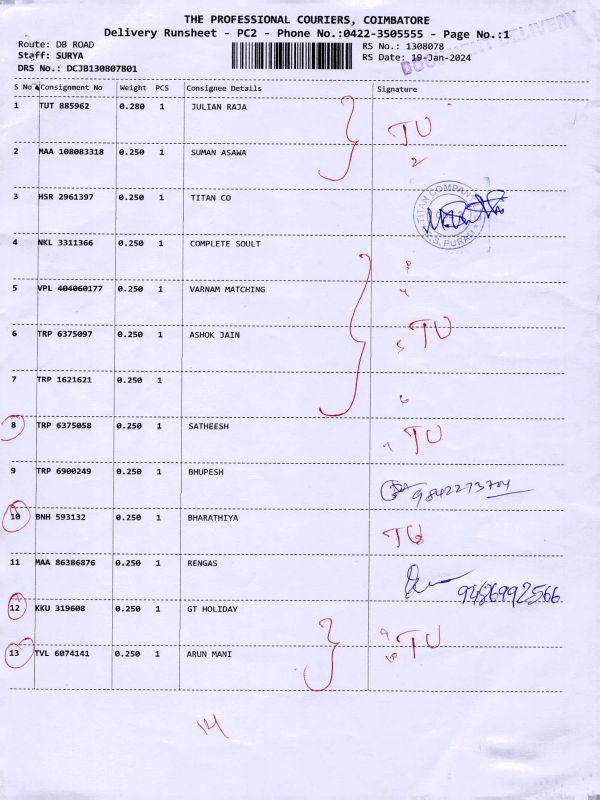 THE PROFESSIONAL COURIERS, COIMBATORE
Delivery Runsheet - PC2 - Phone No.:0422-3505555 - Page No.:1
Route: DB ROAD RS No.: 1308078
Staff: SURYA RS Date: 19-Jan-2024
DRS No.: DCJB130807801 DELIVERY
S No Consignment No Weight PCS Consignee Details Signature
1 TUT 885962 0.280 1 JULIAN RAJA TU
2 MAA 108083318 0.250 1 SUMAN ASAWA 2
3 HSR 2961397 0.250 1 TITAN CO TITAN COMPANY
4 NKL 3311366 0.250 1 COMPLETE SOULT
5 VPL 404060177 0.250 1 VARNAM MATCHING 4
6 TRP 6375097 0.250 1 ASHOK JAIN 5 TU
7 TRP 1621621 0.250 1 6
8 TRP 6375058 0.250 1 SATHEESH 7 TU
9 TRP 6900249 0.250 1 BHUPESH 9842273704
10 BNH 593132 0.250 1 BHARATHIYA
11 MAA 86386876 0.250 1 RENGAS 9486992566
12 KKU 319608 0.250 1 GT HOLIDAY
13 TVL 6074141 0.250 1 ARUN MANI TU
14